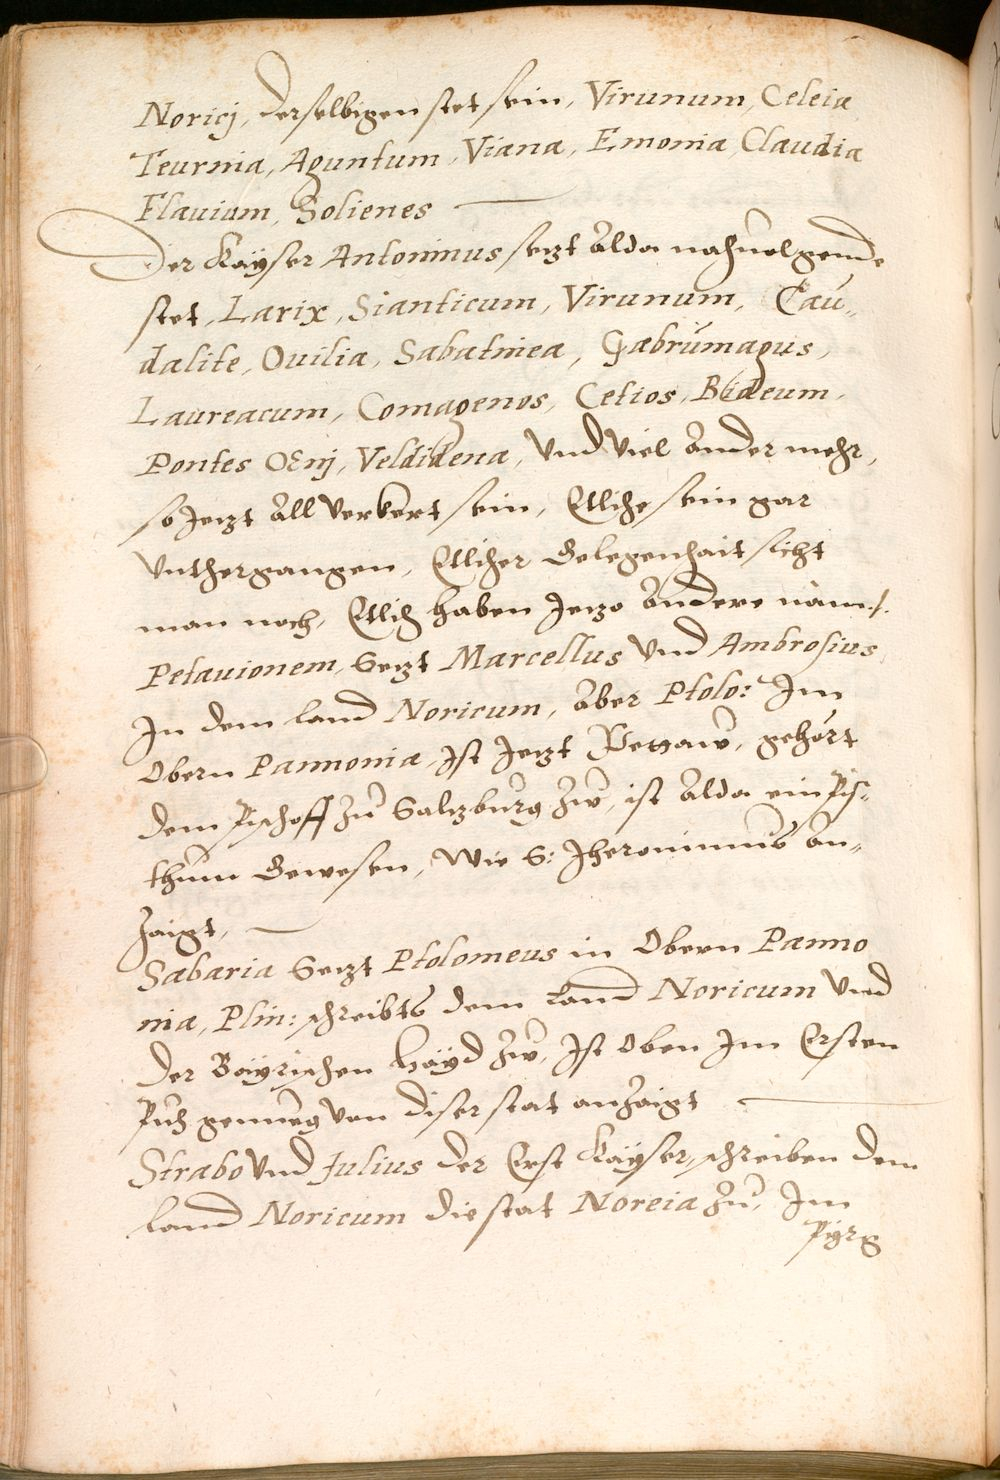 Noricj, derselbigen stet sein, Virunum, Celeia
Teurnia, Aguntum, Viana, Emonia Claudia
Flauium, Solienes
Der Kayser Antoninus setzt alda nachuolgende
stet, Larix, Sianticum, Virunum, Cau„
dalite, Ouilia, Sabatinea, Gabrúmagus,
Laureacum, Comagenos, Cetios, Bideum,
Pontes Œnj, Veldidena, Vnd Viel ander mehr,
so Jetzt all Verkert sein, Etliche sein gar
Vnthergangen, Etlicher Gelegenhait sicht
man noch, Etlich haben Jetzo andere nam/.
Petauionem, Setzt Marcellus Vnd Ambrosius
In dem land Noricum, aber Ptolo: Im
Obern Pannonia, Ist Jetzt Pettaw, gehört
dem Pischoff Zu Saltzburg Zw, ist alda ein Pis„
thum Gewesen, Wie S: Jheronimus an„
Zaigt,
Sabaria Setzt Ptolomeus in Obern Panno
nia, Plin: schreibts dem land Noricum Vnd
der Bayrischen Hayd Zw, Ist Oben Im Ersten
Puch genueg Von diser stat anzaigt
Strabo Vnd Julius der Erst Kayser, schreiben dem
land Noricum die stat Noreia Zu, Im
Pyrg